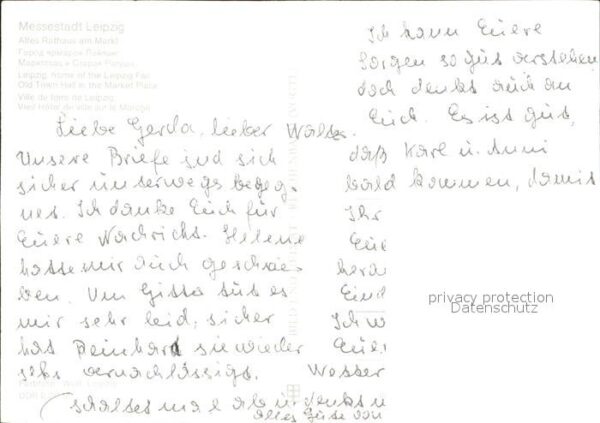 Messestadt Leipzig
Altes Rathaus am Markt
Leipzig, home of the Leipzig Fair
Old Town Hall in the Market Place
Ville de foire de Leipzig
Liebe Gerda, lieber Walter.
Unsere Briefe sind sich
sicher unterwegs begeg-
net. Ich danke Euch für
Euere Nachricht. Helene
hatte mir auch geschrie-
ben. Um Gitta tut es
mir sehr leid, sicher
hat Reinhard sie wieder
sehr vernachlässigt.
Ich kann Euere
Sorgen so gut verstehen
doch denkt auch an
Euch. Es ist gut,
daß Karl u. Anni
bald kommen, damit
Ihr
Eue
hera
Eind
Ich w
Euer
Wetter
schaltet mal ab u. denkt
alles Gute von
privacy protection
Datenschutz